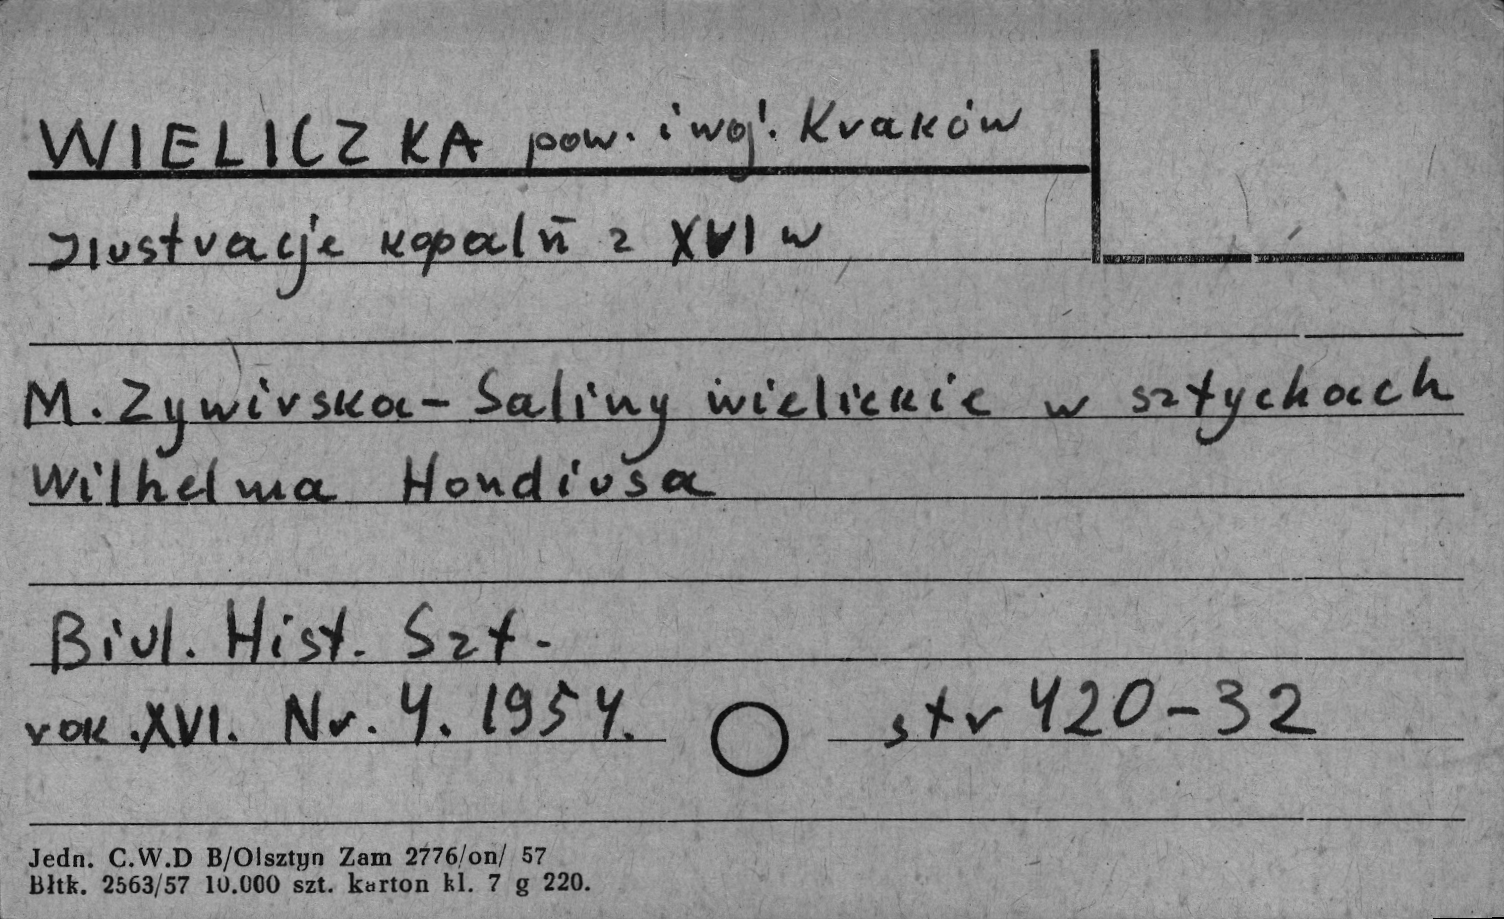 WIELICZKA pow. i woj. Kraków
Ilustracje kopalń z XVI w
M. Zywirska - Saliny wielickie w sztychach
Wilhelma Hondiusa
Biul. Hist. Szt.
rok. XVI. Nr. 4. 1954. str 420-32
Jedn. C.W.D B/Olsztyn Zam 2776/on/ 57
Błtk. 2563/57 10.000 szt. karton kl. 7 g 220.